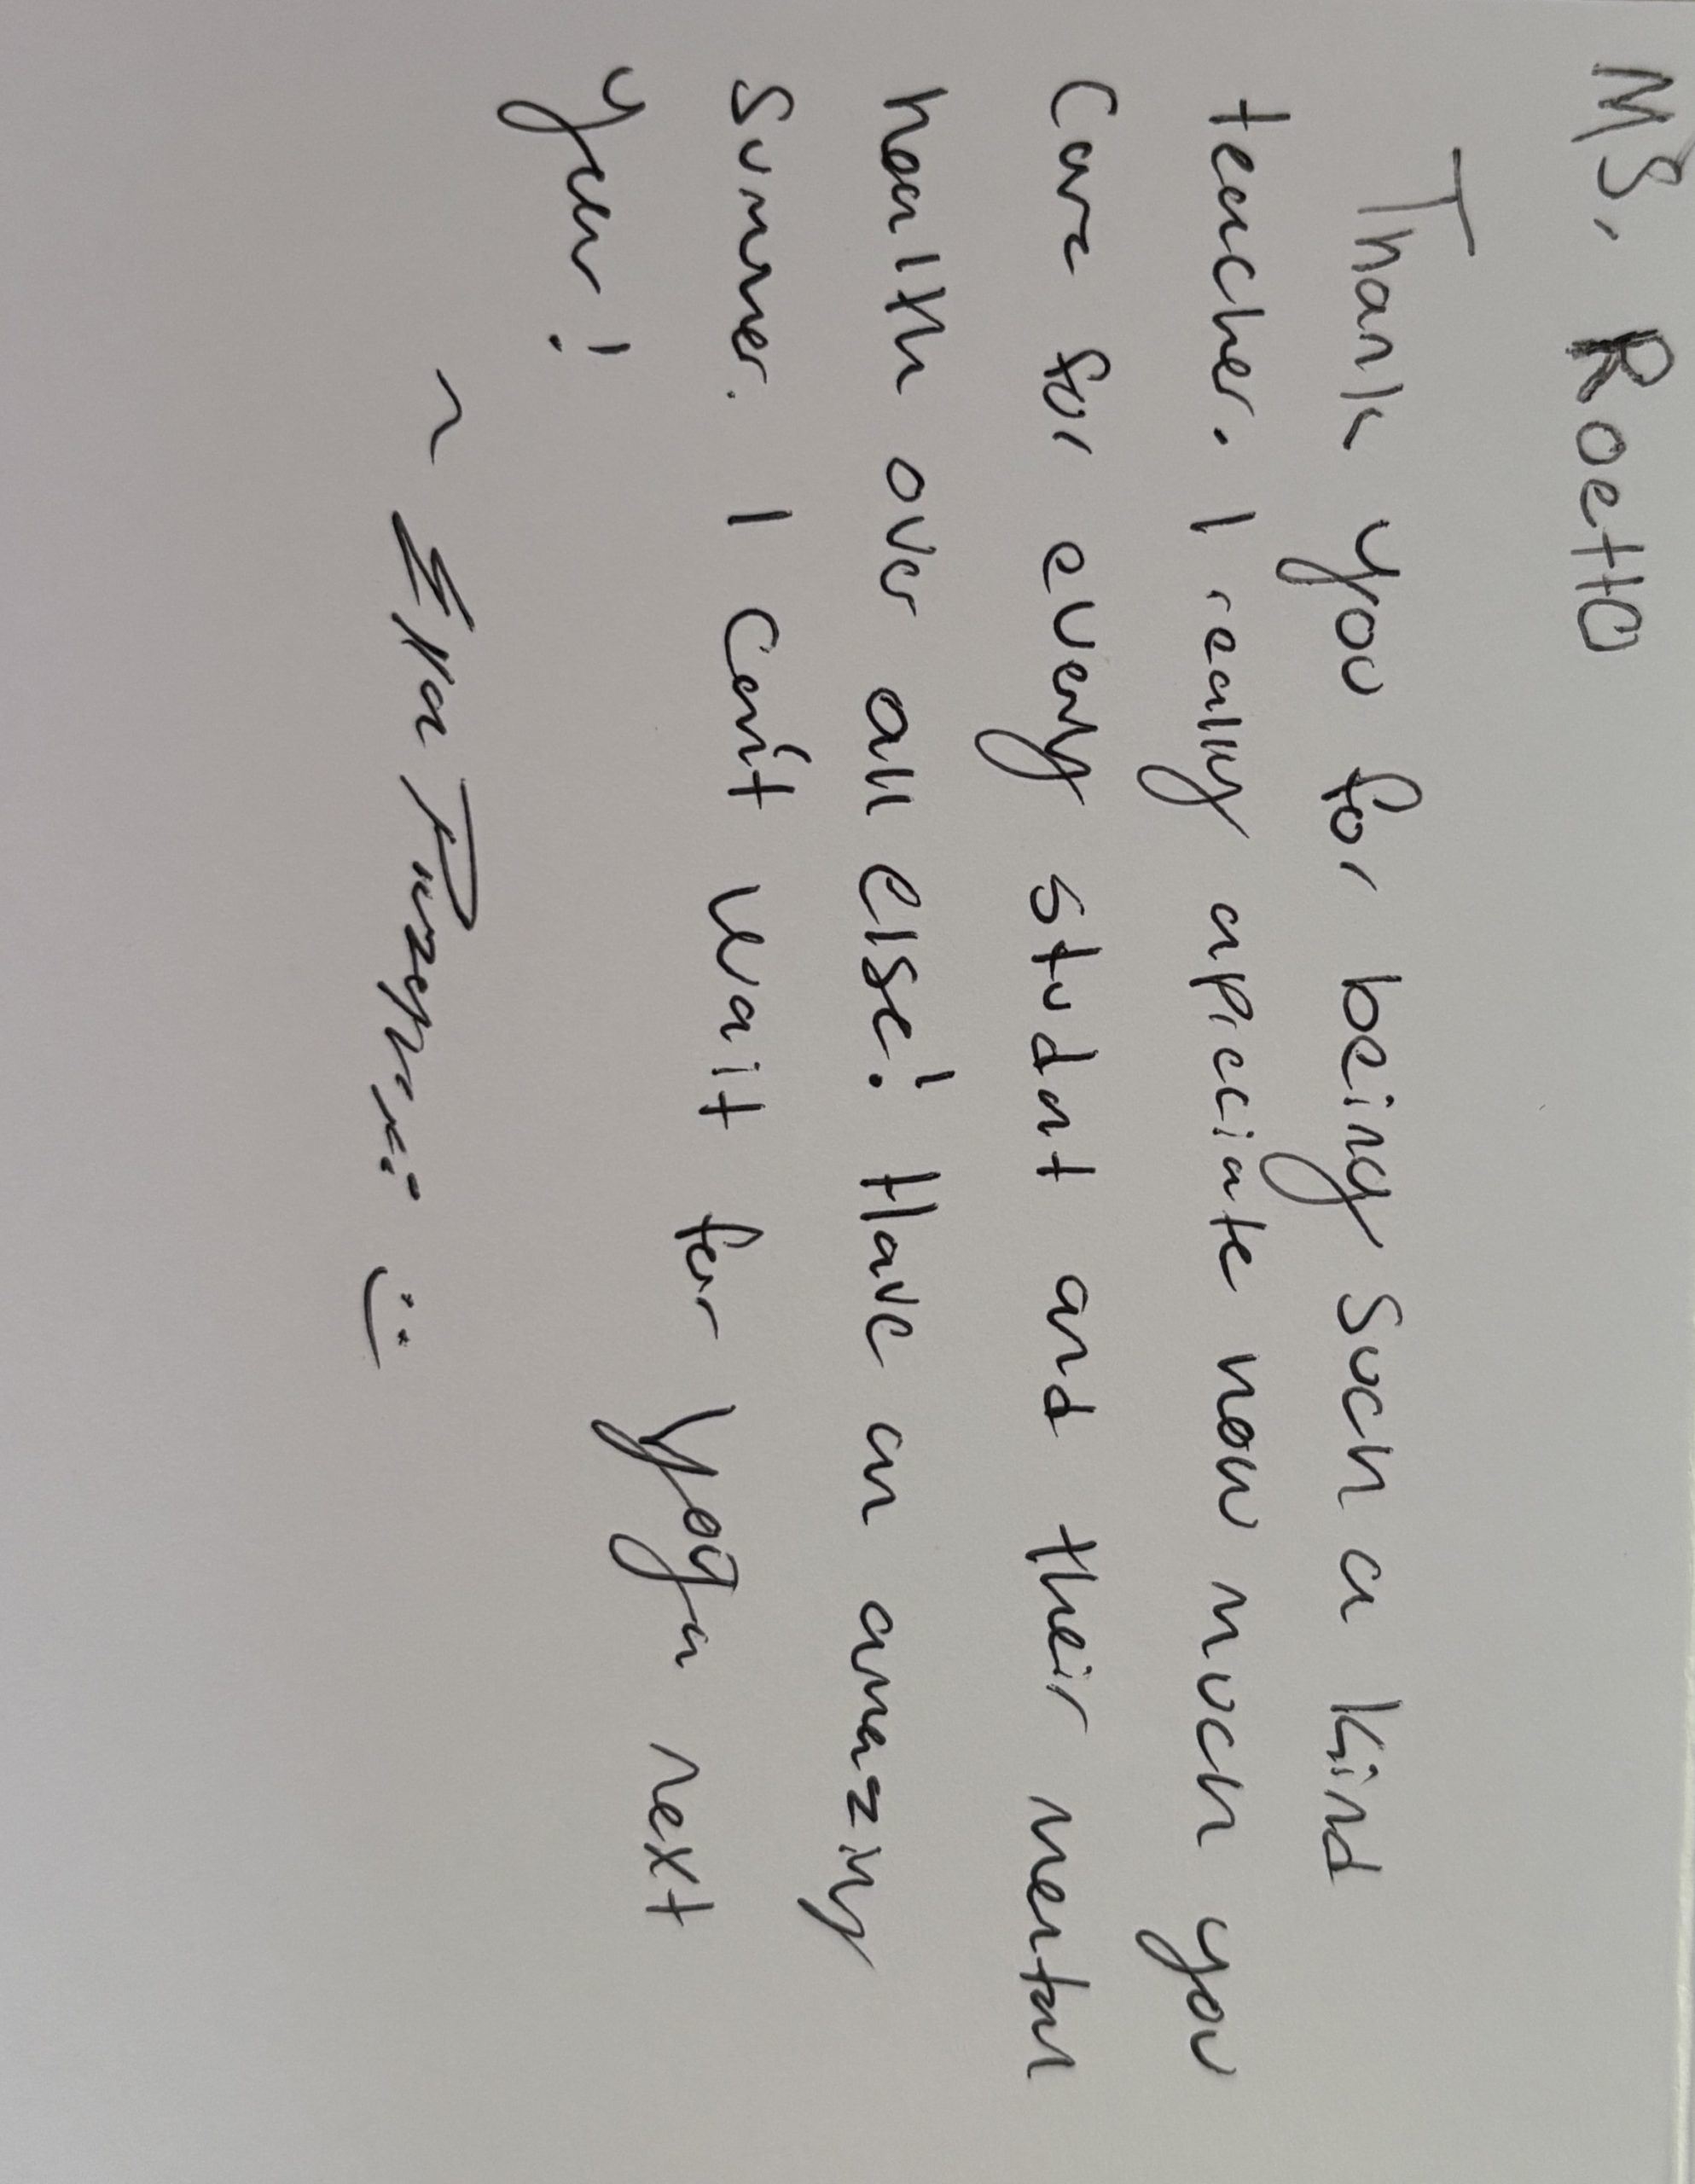 Ms. Roetto
Thank you for being such a kind
teacher. I really apreciate how much you
care for every studnt and their mental
health over all else! Have an amazing
summer. I can't wait for yoga next
year!
~ Ella :)